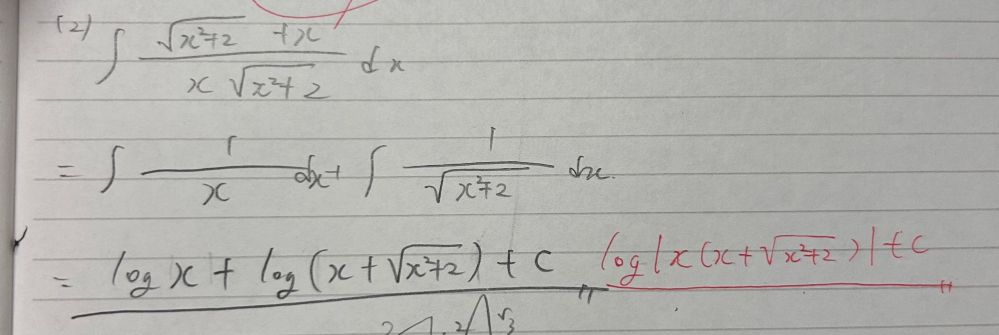 (2) ∫ (√(x²+2) + x)/(x √(x²+2)) dx
= ∫ 1/x dx + ∫ 1/√(x²+2) dx.
= log x + log(x + √(x²+2)) + C log|x(x + √(x²+2))| + C